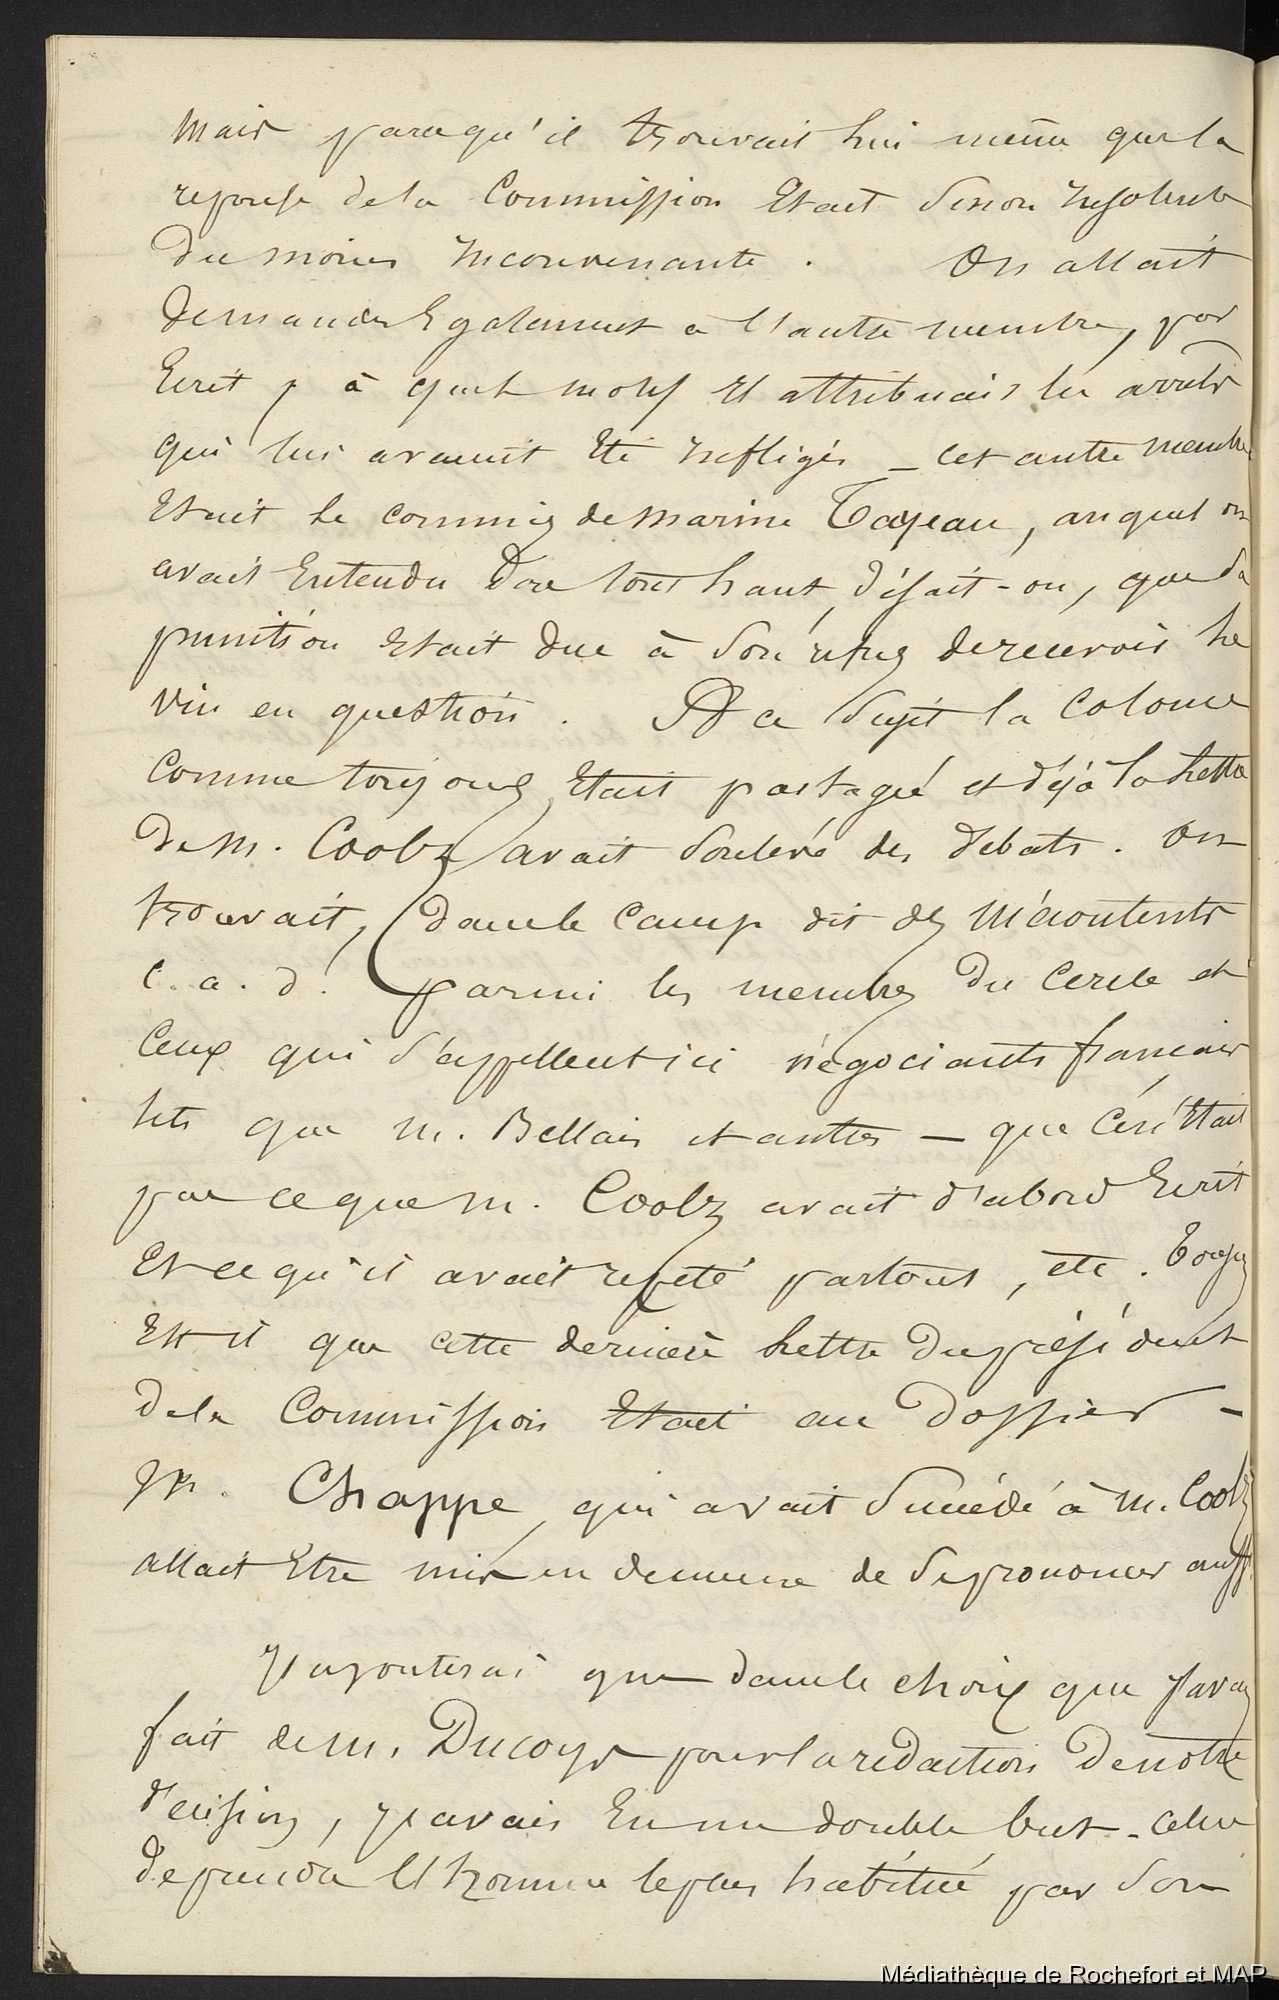 Mais parcequ'il trouvait lui même que la
reponse dela Commission Etait sinon insolente
du moins inconvenante. On allait
demander Egalement à l'autre membre, par
Ecrit, à quel motif il attribuait les arrêts
qui lui avaient Eté infligés – cet autre membre
Etait le commis de marine Tayeau, auquel on
avait Entendu dire tout haut, disait-on, que sa
punition etait due à son refus de recevoir le
vin en question. A ce sujet la Colonie
comme toujours Etait partagée et déjà la lettre
de M. Coolz avait soulevé des débats. On
trouvait, dans le camp dit des Mécontents
c.a.d. parmi les membres du cercle et
ceux qui s'appellent ici négociants français
tels que M. Bellais et autres – que c'en était
parceque M. Coolz avait d'abord Ecrit
Et ce qu'il avait répété partout, etc. Toujs
Est il que cette dernière lettre du président
dela Commission Etait au dossier –
M. Chappe, qui avait succédé à M. Coolz
allait Etre mis en demeure de se prononcer aussi.
J'ajouterai que dans le choix que j'avais
fait de M. Ducoys pour la rédaction de notre
décision, j'avais Eu un double but – celui
de prendre l'homme le plus habitué par son
Médiathèque de Rochefort et MAP